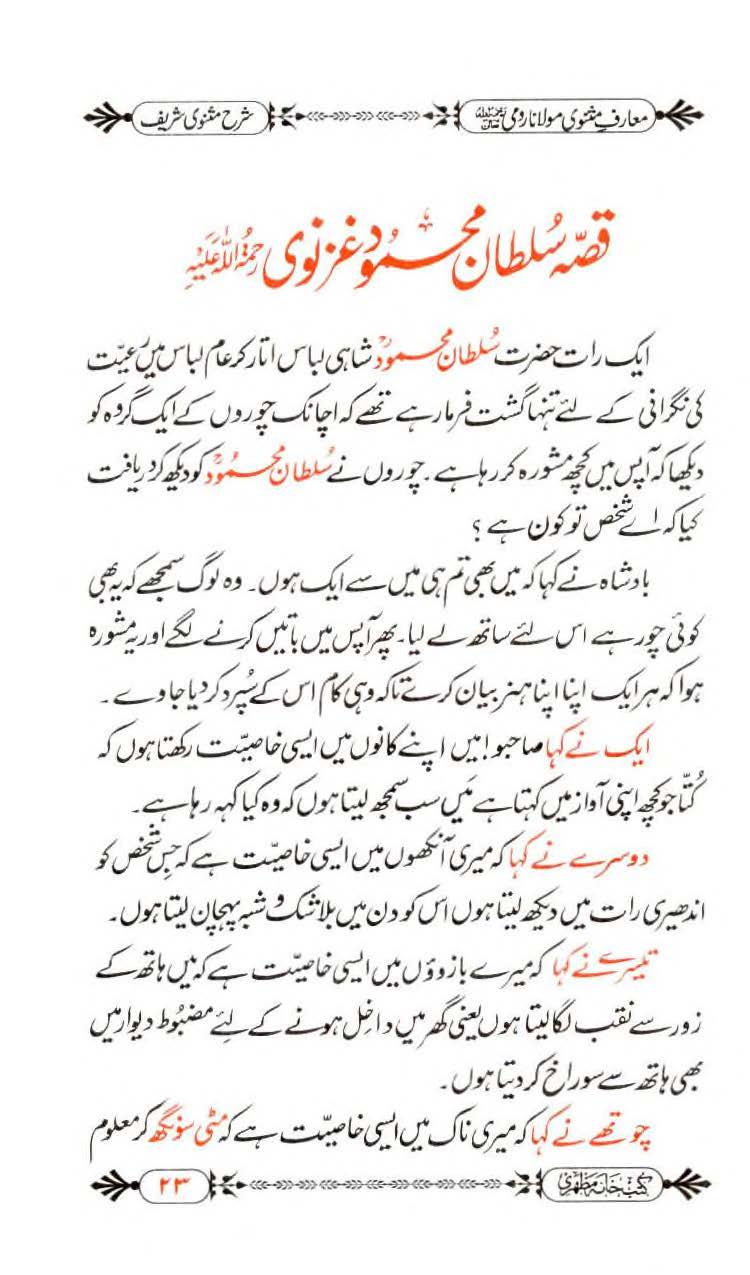 معارفِ مثنوی مولانا رومی رحمۃ اللہ تعالیٰ علیہ
شرح مثنوی شریف
قصّہ سُلطان محمُود غزنوی رحمۃُ اللّٰہ عَلَیْہِ
ایک رات حضرت سُلطان محمُودؒ شاہی لباس اتار کر عام لباس میں رُعیّت
کی نگرانی کے لئے تنہا گشت فرما رہے تھے کہ اچانک چوروں کے ایک گروہ کو
دیکھا کہ آپس میں کچھ مشورہ کر رہا ہے۔ چوروں نے سُلطان محمُودؒ کو دیکھ کر دریافت
کیا کہ اے شخص تو کون ہے ؟
بادشاہ نے کہا کہ میں بھی تم ہی میں سے ایک ہوں۔ وہ لوگ سمجھے کہ یہ بھی
کوئی چور ہے اس لئے ساتھ لے لیا۔ پھر آپس میں باتیں کرنے لگے اور یہ مشورہ
ہوا کہ ہر ایک اپنا اپنا ہنر بیان کرے تاکہ وہی کام اس کے سُپرد کر دیا جاوے ۔
ایک نے کہا صاحبو! میں اپنے کانوں میں ایسی خاصیّت رکھتا ہوں کہ
کُتّا جو کچھ اپنی آواز میں کہتا ہے مَیں سب سمجھ لیتا ہوں کہ وہ کیا کہہ رہا ہے۔
دوسرے نے کہا کہ میری آنکھوں میں ایسی خاصیّت ہے کہ جس شخص کو
اندھیری رات میں دیکھ لیتا ہوں اس کو دن میں بلا شک و شبہ پہچان لیتا ہوں۔
تیسرے نے کہا کہ میرے بازوؤں میں ایسی خاصیّت ہے کہ میں ہاتھ کے
زور سے نقب لگا لیتا ہوں یعنی گھر میں داخِل ہونے کے لئے مضبُوط دیوار میں
بھی ہاتھ سے سوراخ کر دیتا ہوں۔
چوتھے نے کہا کہ میری ناک میں ایسی خاصیّت ہے کہ مٹی سونگھ کر معلوم
کُتب خانہ مَظہری
۲۳